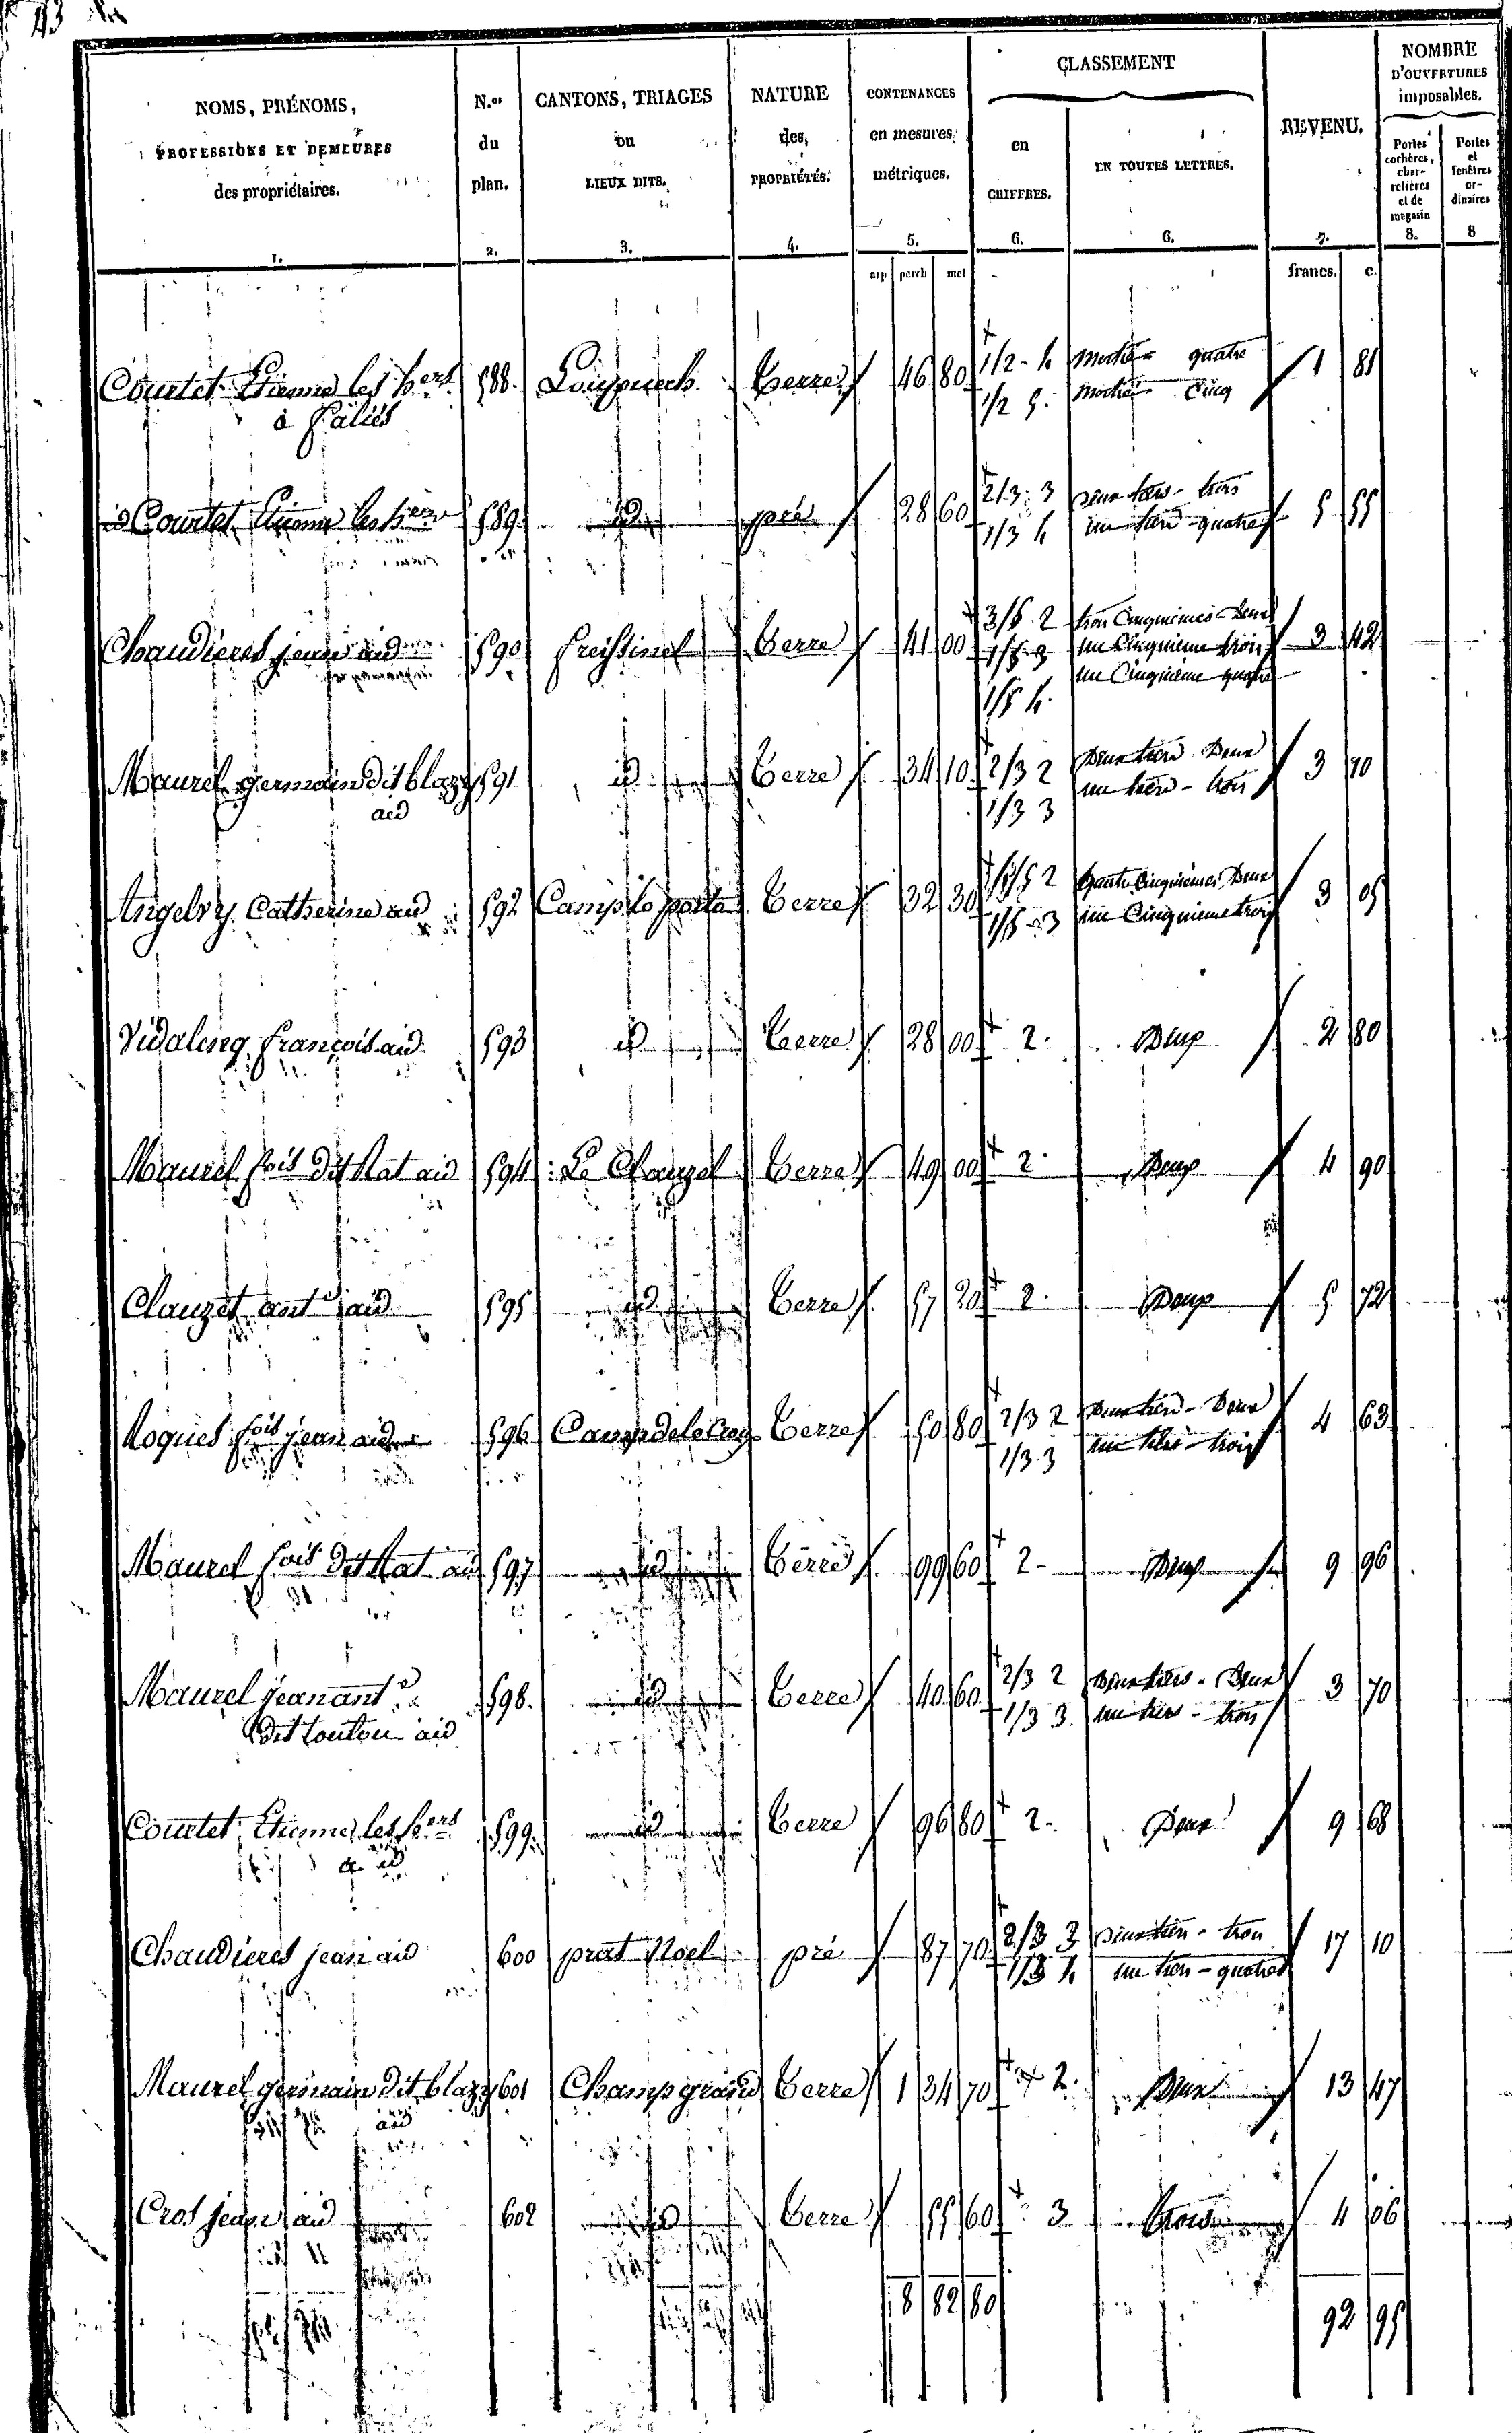 43
NOMS, PRÉNOMS, PROFESSIONS ET DEMEURES des propriétaires. 1.
N.os du plan. 2.
CANTONS, TRIAGES ou LIEUX DITS. 3.
NATURE des PROPRIÉTÉS. 4.
CONTENANCES en mesures métriques. 5.
CLASSEMENT
en CHIFFRES. 6.
EN TOUTES LETTRES. 6.
REVENU. 7.
NOMBRE D'OUVERTURES imposables.
Portes cochères, charretières et de magasin 8.
Portes et fenêtres ordinaires 8
arp perch met francs. c.
Courtet Etienne les hers 588. Terre 46 80 1/2 - 4 moitié - quatre 1 81
à Paliés 1/2 5. moitié - Cinq
id Courtet Etienne les hers 589. id pré 28 60 2/3 : 3 deux tiers - trois 5 55
1/3 4 un tiers - quatre
Chaudieres jean aid 590 freissinel Terre 41 00 3/5 . 2 trois Cinquiemes - Deux 3 42
1/5 . 3 un Cinquieme trois
1/5 4. un Cinquieme quatre
Maurel germain dit blazy 591 id Terre 34 10 2/3 2 Deux tiers Deux 3 10
aid 1/3 3 un tiers - trois
Angelvy Catherine aid 592 Camp la porte Terre 32 30 4/5 2 quatre Cinquiemes Deux 3 05
1/5 - 3 un Cinquieme trois
Vidaleng françois aid 593 id Terre 28 00 2. Deux 2 80
Maurel fois dit Rat aid 594 Le Clauzel Terre 49 00 2. Deux 4 90
Clauzet ant.e aid 595 id Terre 57 20 2. Deux 5 72
Roques fois jean aid 596 Terre 50 80 2/3 2 Deux tiers - Deux 4 63
1/3 . 3 un tiers - trois
Maurel fois dit Rat aid 597 id Terre 99 60 2 - Deux 9 96
Maurel jean ant.e 598. id Terre 40 60 2/3 2 Deux tiers - Deux 3 70
dit touton aid 1/3 3. un tiers - trois
Courtet Etienne les hers 599. id Terre 96 80 2. Deux 9 68
a id
Chaudieres jean aid 600 prat Noel pré 87 70 2/3 3 Deux tiers - trois 17 10
1/3 4 un tiers - quatre
Maurel germain dit blazy 601 Champ grand Terre 1 34 70 2. Deux 13 47
aid
Cros jean aid 602 id Terre 55 60 3 trois 4 06
8 82 80 92 95